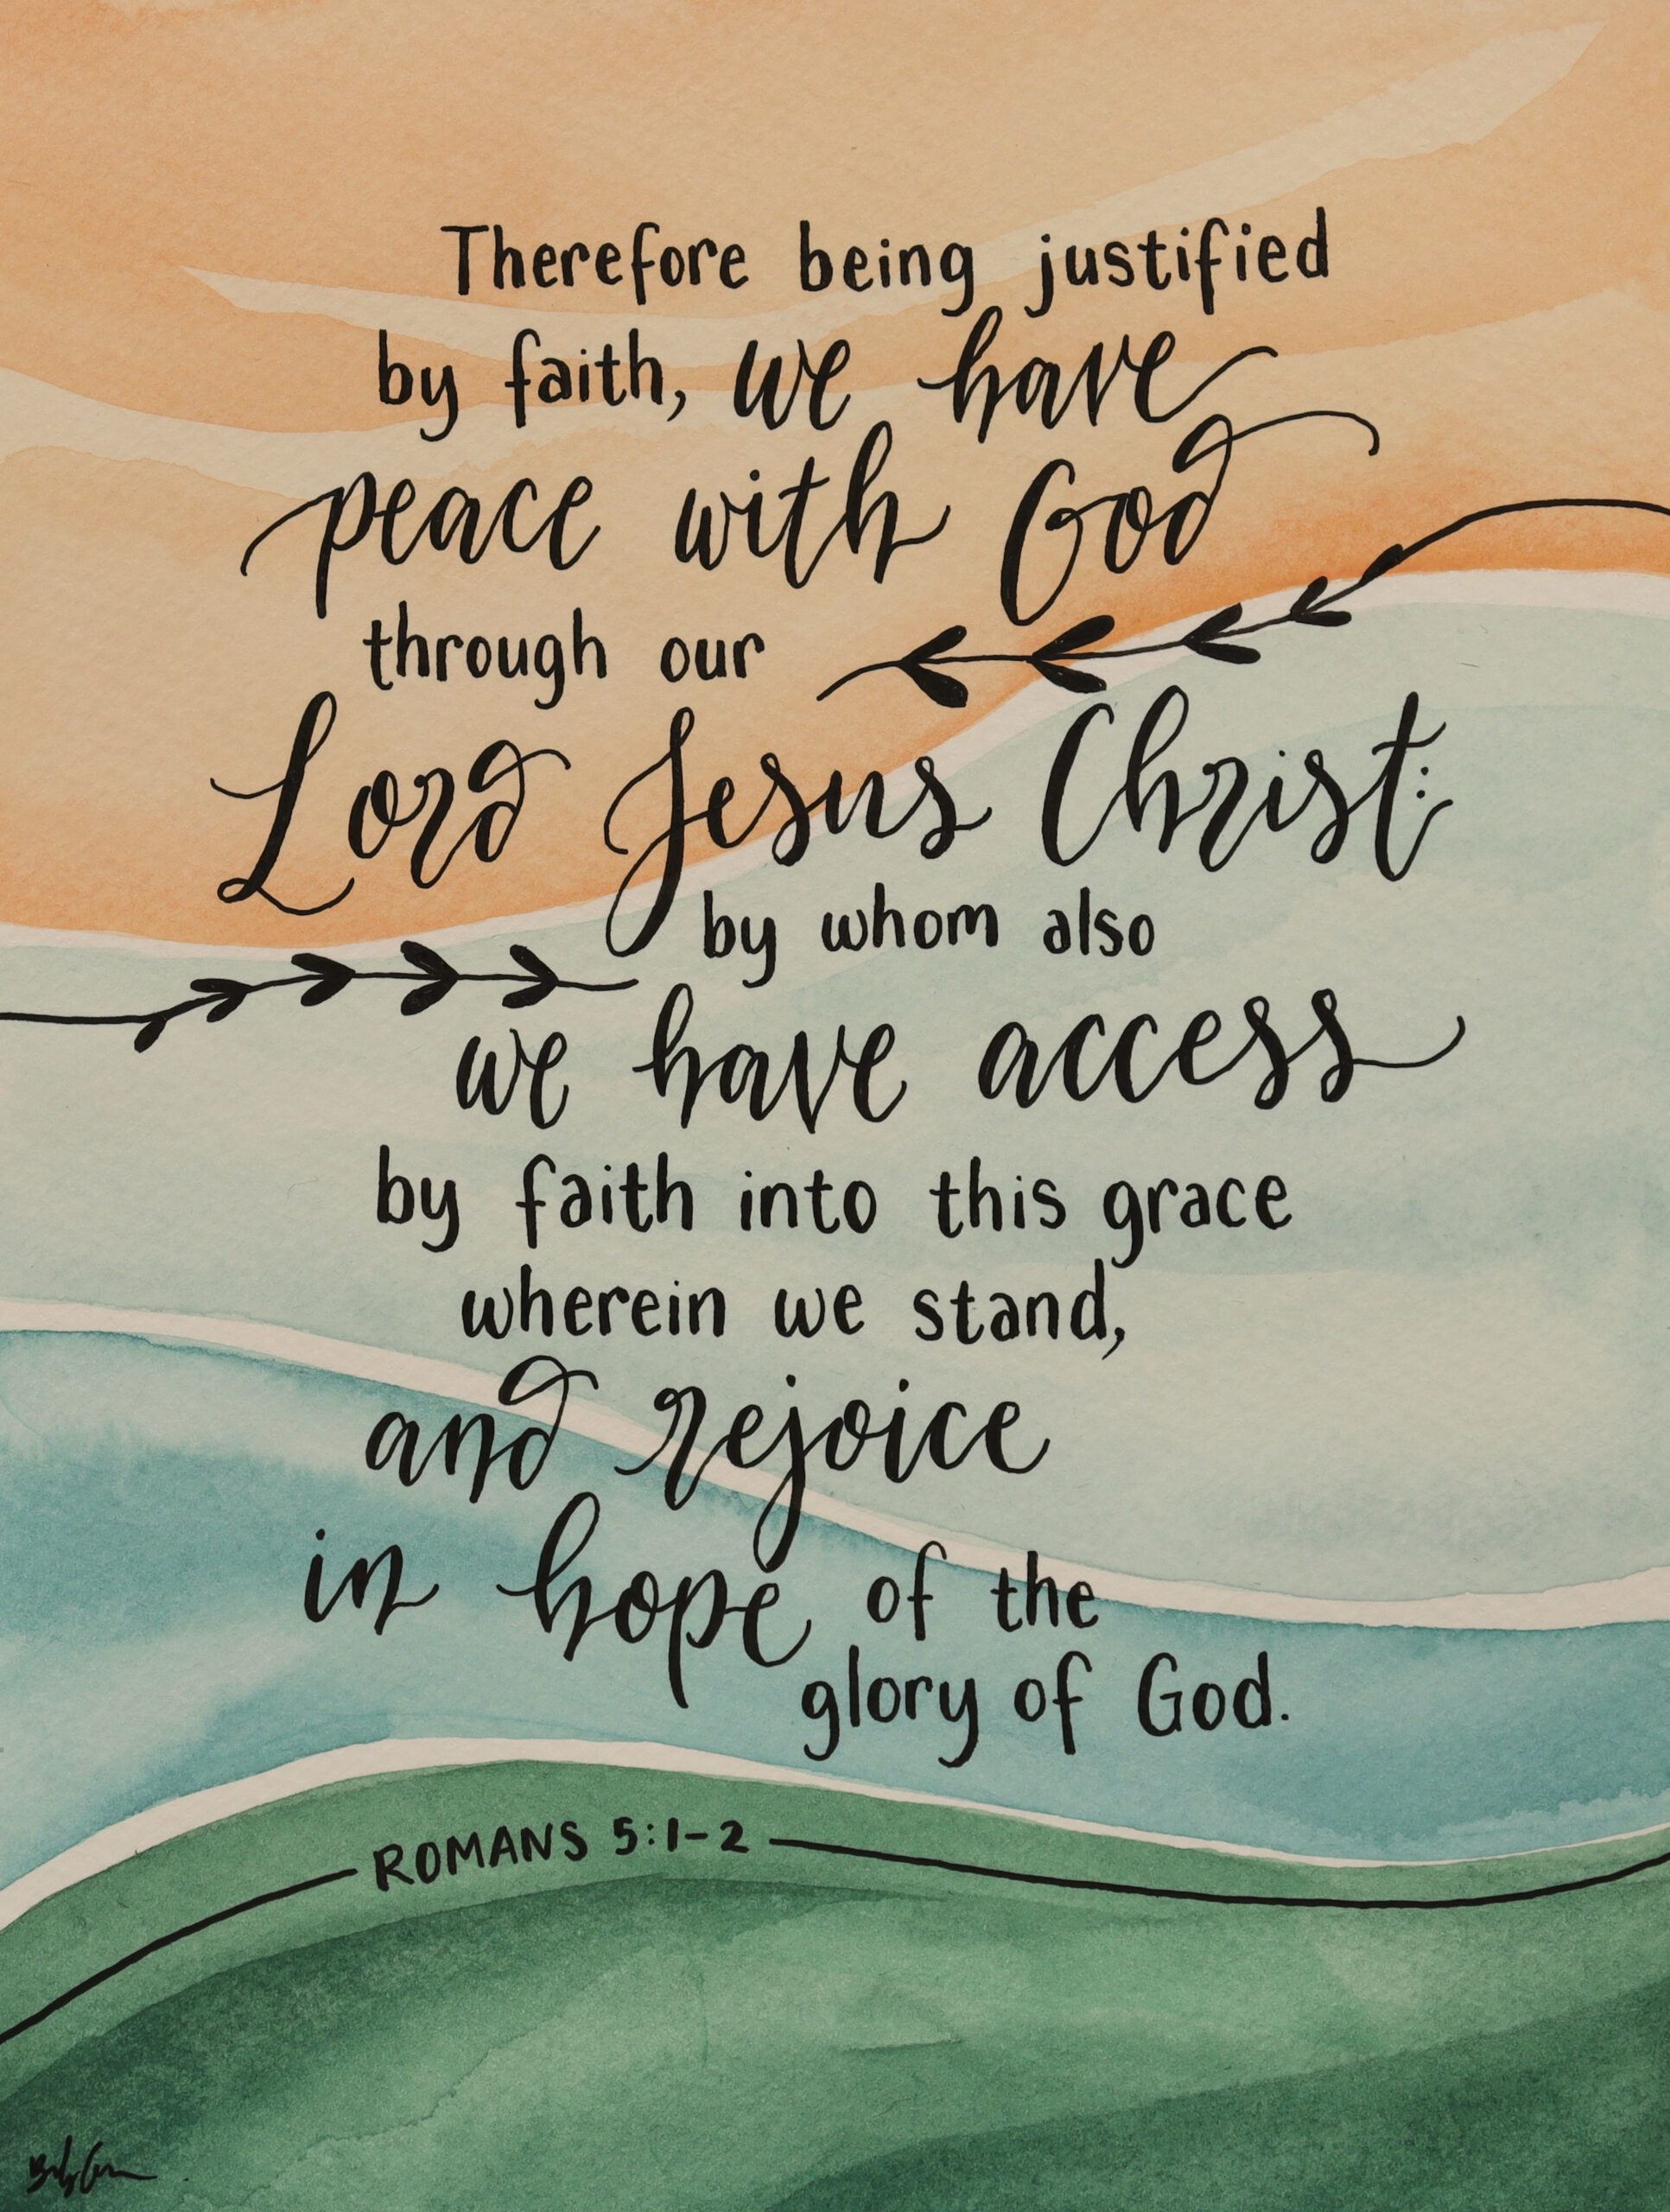 Therefore being justified
by faith, we have
peace with God
through our
Lord Jesus Christ:
by whom also
we have access
by faith into this grace
wherein we stand,
and rejoice
in hope of the
glory of God.
ROMANS 5:1-2